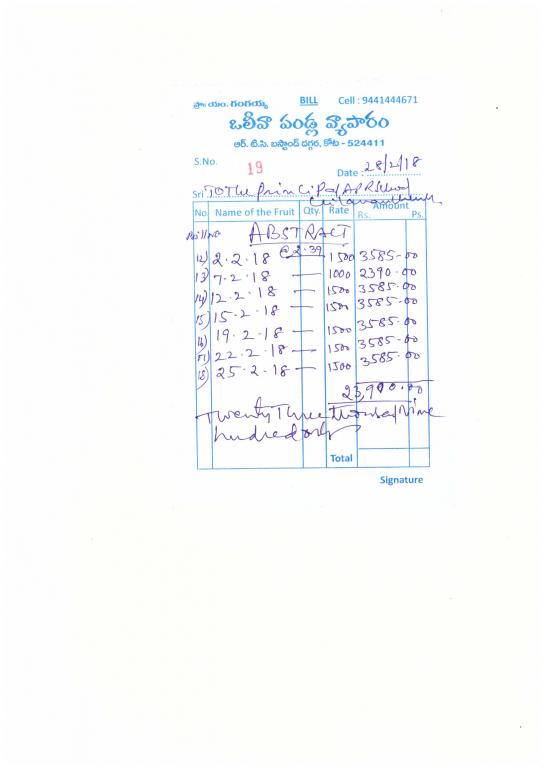 ప్రొ: యం. గంగయ్య BILL Cell : 9441444671
ఒలీవా పండ్ల వ్యాపారం
ఆర్. టి.సి. బస్టాండ్ దగ్గర, కోట - 524411
S.No. 19
Date : 28/2/18
Sri TO The Principal APR School
No. Name of the Fruit Qty. Rate Amount Rs. Ps.
Bill No ABSTRACT
@ 2.39
12) 2.2.18 — 1500 3585-00
13) 7.2.18 — 1000 2390-00
14) 12.2.18 — 1500 3585-00
15) 15.2.18 — 1500 3585-00
16) 19.2.18 — 1500 3585-00
17) 22.2.18 — 1500 3585-00
18) 25.2.18 — 1500 3585-00
23,900.00
Twenty Three thousand Nine
hundred only
Total
Signature